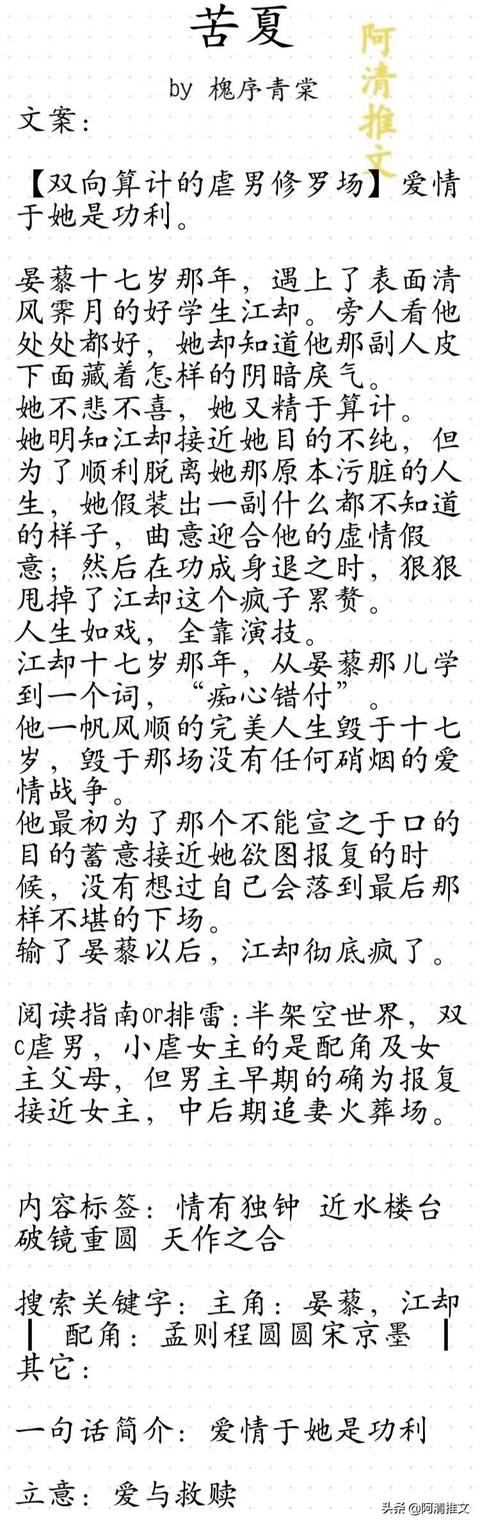 苦夏
阿清推文
by 槐序青棠
文案：
【双向算计的虐男修罗场】爱情
于她是功利。
晏藜十七岁那年，遇上了表面清
风霁月的好学生江却。旁人看他
处处都好，她却知道他那副人皮
下面藏着怎样的阴暗戾气。
她不悲不喜，她又精于算计。
她明知江却接近她目的不纯，但
为了顺利脱离她那原本污脏的人
生，她假装出一副什么都不知道
的样子，曲意迎合他的虚情假
意；然后在功成身退之时，狠狠
甩掉了江却这个疯子累赘。
人生如戏，全靠演技。
江却十七岁那年，从晏藜那儿学
到一个词，“痴心错付”。
他一帆风顺的完美人生毁于十七
岁，毁于那场没有任何硝烟的爱
情战争。
他最初为了那个不能宣之于口的
目的蓄意接近她欲图报复的时
候，没有想过自己会落到最后那
样不堪的下场。
输了晏藜以后，江却彻底疯了。
阅读指南or排雷：半架空世界，双
c虐男，小虐女主的是配角及女
主父母，但男主早期的确为报复
接近女主，中后期追妻火葬场。
内容标签：情有独钟 近水楼台
破镜重圆 天作之合
搜索关键字：主角：晏藜，江却
┃ 配角：孟则程圆圆宋京墨 ┃
其它：
一句话简介：爱情于她是功利
立意：爱与救赎
头条 @阿清推文